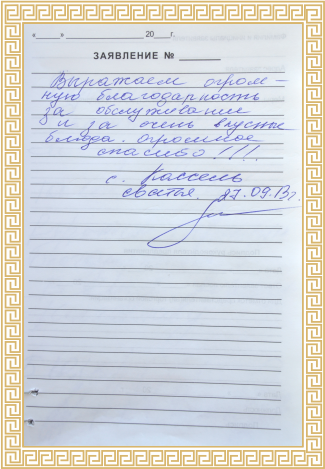 «____» ________ 20___г.
ЗАЯВЛЕНИЕ № ______
Выражаем огром-
ную благодарность
за обслуживание
и за очень вкусные
блюда. Огромное
спасибо!!!
с. Кассель
27.09.13г.